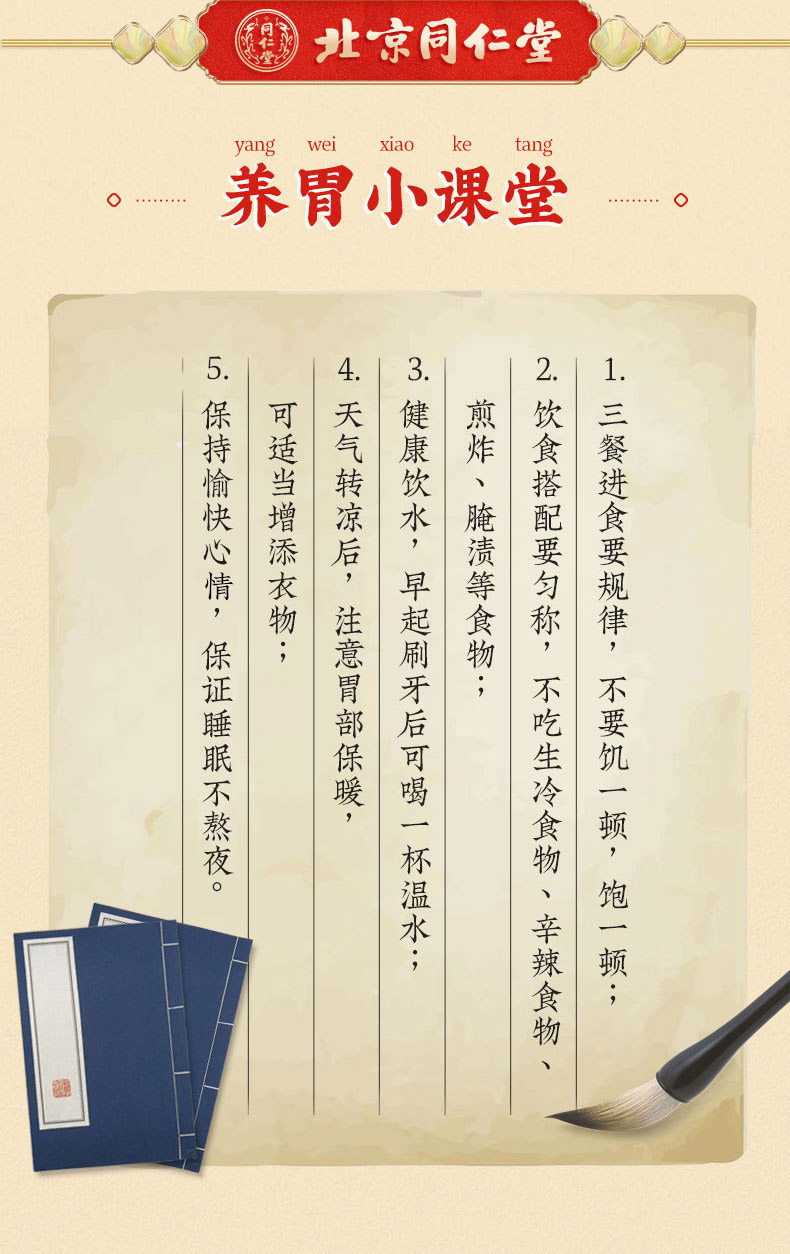 同仁堂
北京同仁堂
yang wei xiao ke tang
养胃小课堂
1. 三餐进食要规律，不要饥一顿，饱一顿；
2. 饮食搭配要匀称，不吃生冷食物、辛辣食物、
煎炸、腌渍等食物；
3. 健康饮水，早起刷牙后可喝一杯温水；
4. 天气转凉后，注意胃部保暖，
可适当增添衣物；
5. 保持愉快心情，保证睡眠不熬夜。